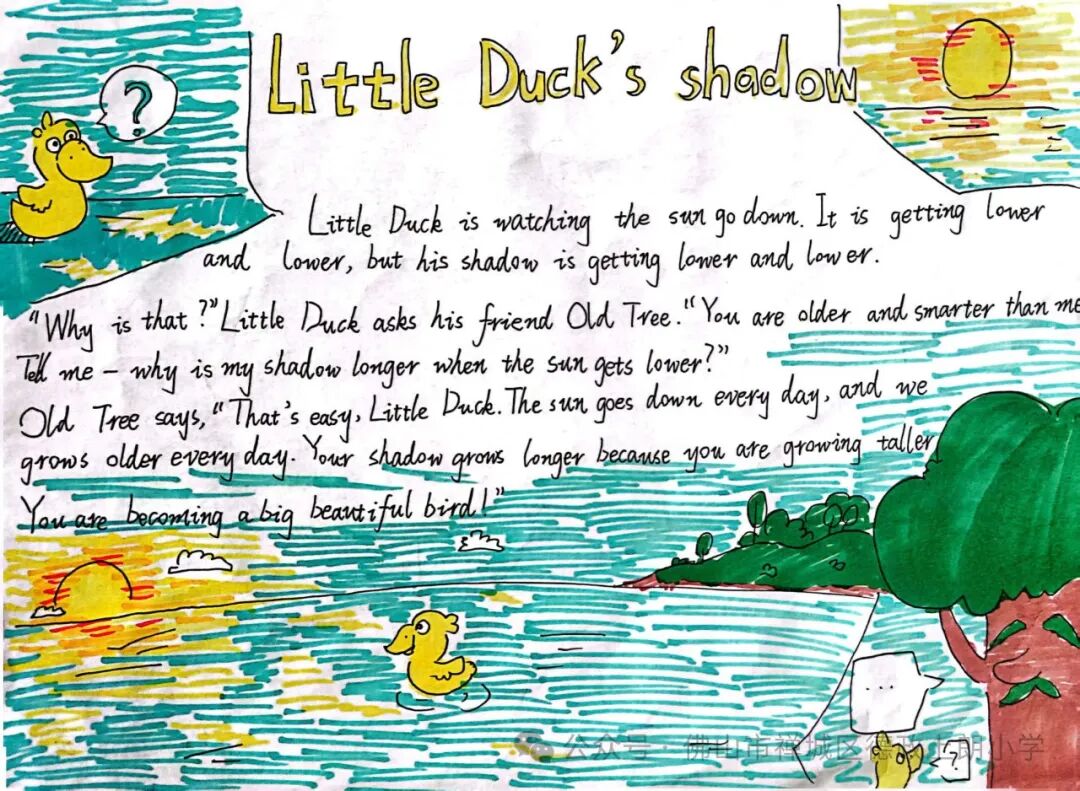 Little Duck's shadow
?
Little Duck is watching the sun go down. It is getting lower
and lower, but his shadow is getting lower and lower.
"Why is that?" Little Duck asks his friend Old Tree. "You are older and smarter than me
Tell me – why is my shadow longer when the sun gets lower?"
Old Tree says, "That's easy, Little Duck. The sun goes down every day, and we
grows older every day. Your shadow grows longer because you are growing taller
You are becoming a big beautiful bird!"
...
?
公众号·佛山市禅城区德 上朗小学